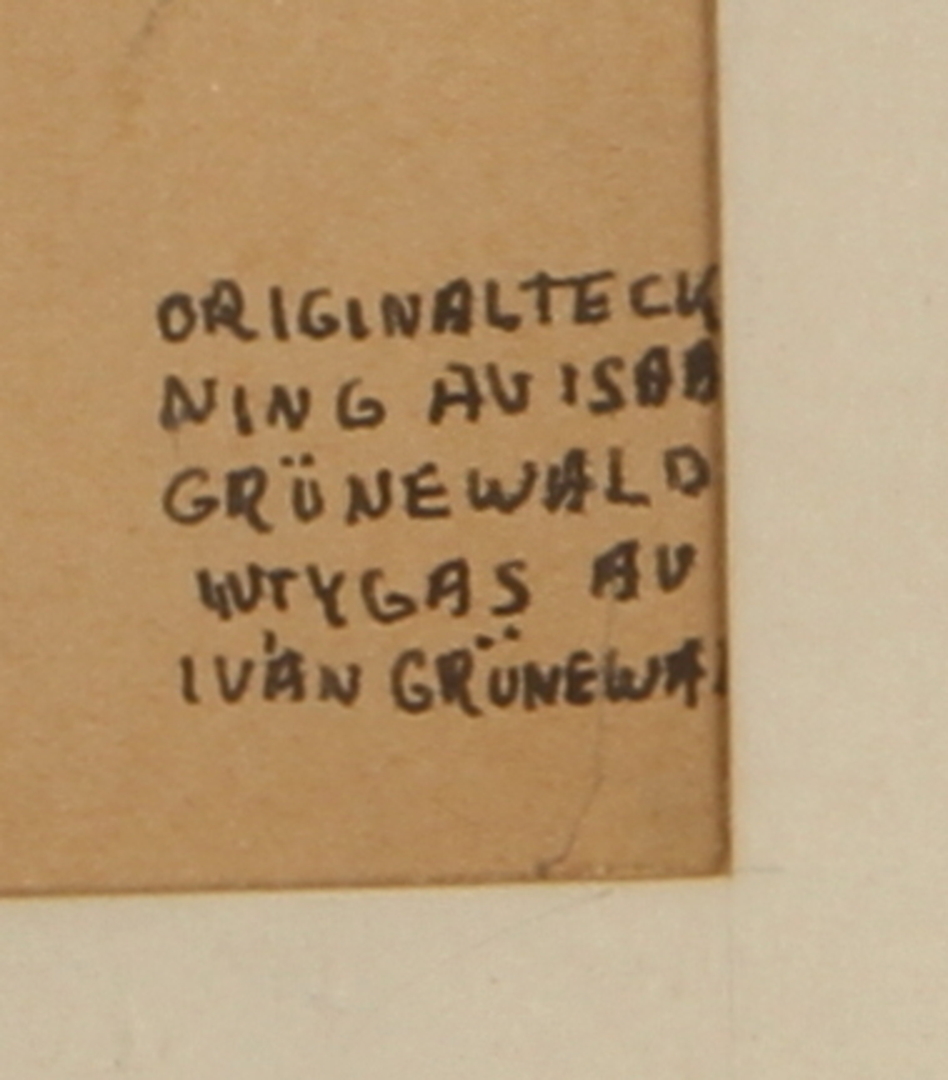 ORIGINALTECK
NING AV ISAA
GRÜNEWALD
INTYGAS AV
IVÁN GRÜNEWA